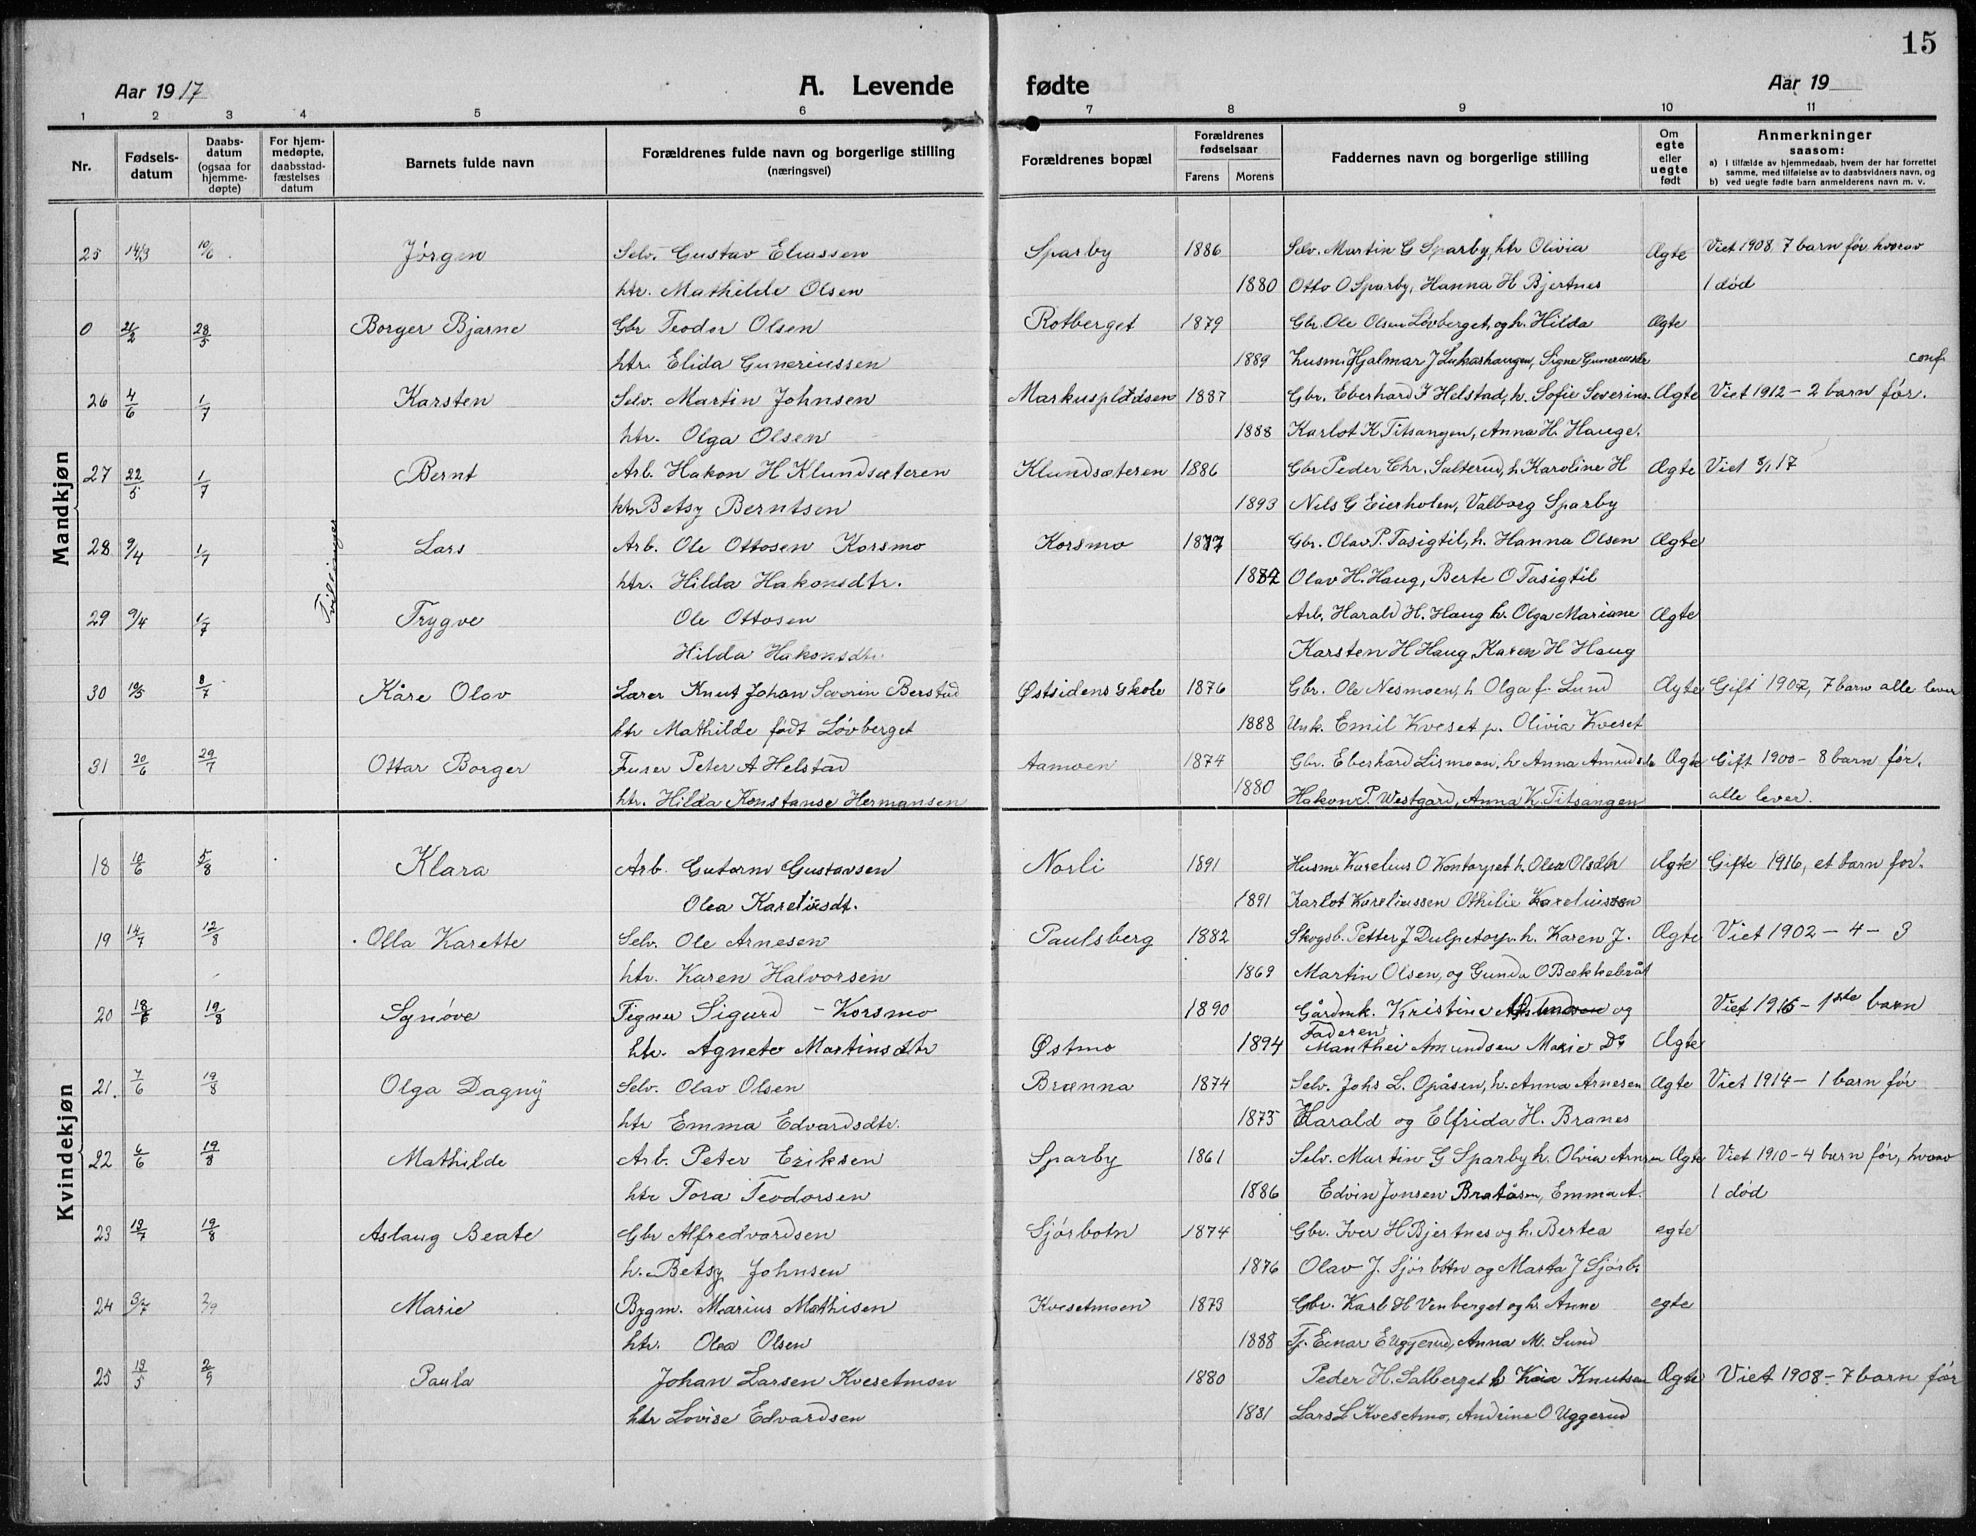 15
Aar 1917 A. Levende fødte Aar 19
1 2 3 4 5 6 7 8 9 10 11
Nr. Fødsels-datum Daabs-datum (ogsaa for hjemme-døpte) For hjem-medøpte, daabsstad-fæstelses datum Barnets fulde navn Forældrenes fulde navn og borgerlige stilling (næringsvei) Forældrenes bopæl Forældrenes fødselsaar Farens Morens Faddernes navn og borgerlige stilling Om egte eller uegte født Anmerkninger saasom:
a) i tilfælde av hjemmedaab, hvem der har forrettet samme, med tilføielse av to daabsvidners navn, og
b) ved uegte fødte barn anmelderens navn m. v.
Mandkjøn
25 14/3 10/6 Jørgen Selv. Gustav Eliassen Sparby 1886 Selv. Martin G Sparby, htr Olivia Ægte Viet 1908. 7 barn før hvorav
htr. Mathilde Olsen 1880 Otto O Sparby, Hanna H Bjertnes 1 død
0 21/2 28/5 Borger Bjarne Gbr Teodor Olsen Rotberget 1879 Gbr. Ole Olsen Løvberget, og h. Hilda Ægte
htr. Elida Guneriussen 1889 Husm. Hjalmar J Lukashaugen, Signe conf
26 4/6 1/7 Karsten Selv. Martin Johnsen Markusplådsen 1887 Gbr. Eberhard J Helstad, h. Sofie Severins. Ægte Viet 1912 - 2 barn før.
htr. Olga Olsen 1888 Karlot K Titsangen, Anna H. Hauge.
27 22/5 1/7 Bernt Arb. Hakon H Klundsæteren Klundsæteren 1886 Gbr Peder Chr. Salterud, h. Karoline H Ægte Viet 8/1 17
htr Betsy Berntsen 1893 Nils G Eierholen, Valborg Sparby
28 9/4 1/7 Tvillinger Lars Arb. Ole Ottosen Korsmo Korsmo 1877 Gbr. Olav P. Tasigtil, h. Hanna Olsen Ægte
htr. Hilda Hakonsdtr. 1882 Olav H. Haug, Berte O Tasigtil
29 9/4 1/7 Trygve Ole Ottosen Arb. Harald H. Haug h. Olga Mariane Ægte
Hilda Hakonsdtr. Karsten H Haug, Karen H Haug
30 19/5 8/7 Kåre Olav Lærer Knut Johan Severin Berstad Østsidens skole 1876 Gbr. Ole Nesmoen, h Olga f. Lund Ægte Gift 1907, 7 barn alle lever
htr Mathilde født Løvberget 1888 Unk. Emil Kveset p. Olivia Kveset
31 20/6 29/7 Ottar Borger Peter A Helstad Aamoen 1874 Gbr. Eberhard Lismoen, h Anna Amundsdr Ægte Gift 1900 - 8 barn før,
htr. Hilda Konstanse Hermansen 1880 Hakon P. Westgard, Anna K. Titsangen alle lever.
Kvindekjøn
18 10/6 5/8 Klara Arb. Gutorm Gustavsen Norli 1891 Husm. Karelius O h. Olea Olsdtr Ægte Gifte 1916, et barn før.
Olea Kareliusdt. 1891 Karlot Kareliussen Othilie Kareliussen
19 14/7 12/8 Olla Karette Selv. Ole Arnesen Paulsberg 1882 Skogsb. Petter J Dulpetorp. h. Karen J. Ægte Viet 1902 - 4 - 3
htr. Karen Halvorsen 1869 Martin Olsen, og Gunda O Bækkebråt
20 18/6 19/8 Synøve Sigurd - Korsmo 1890 Gårdmk. Kristine Amundsen og Viet 1916 - 1ste barn
Faderen
htr. Agnete Martinsdtr Østmo 1894 Manthei Amundsen Marie Do Ægte
21. 7/6 19/8 Olga Dagny Selv. Olav Olsen Brænna 1874 Selv. Johs L. Opåsen, h. Anna Arnesen Ægte Viet 1914 - 1 barn før
htr Emma Edvardsdtr. 1875 Harald og Elfrida H. Branes
22 6/6 19/8 Mathilde Arb. Peter Eriksen Sparby 1861 Selv. Martin G Sparby h. Olvia Arnsen Ægte Viet 1910 - 4 barn før, hvorav
htr Tora Teodorsen 1886 Edvin Jonsen Bratåsen, Emma A. 1 død
23 19/7 19/8 Aslaug Beate Gbr Alfredvardsen Sjørbotn 1874 Gbr. Iver H Bjertnes og h. Bertea egte
h. Betsy Johnsen 1876 Olav J. Sjørbotn og Marta J Sjørb.
24 3/7 2/9 Marie Bygm. Marius Mathisen Kvesetmoen 1873 Gbr. Karl H Venberget og h. Anne egte
htr. Olea Olsen 1888 Tj. Einar E Uggerud, Anna M. Sund
25 19/5 2/9 Paula Johan Larsen Kvesetmon 1880 Peder H. Salberget h Kaia Knutsen Ægte Viet 1908 - 7 barn før
htr Lovise Edvardsen 1881 Lars L Kvesetmo, Andrine O Uggerud